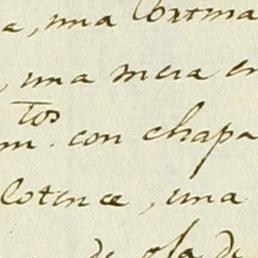 a, una Cortina
, una mesa en
tos
m. con chapa
lotence, una
de ola de